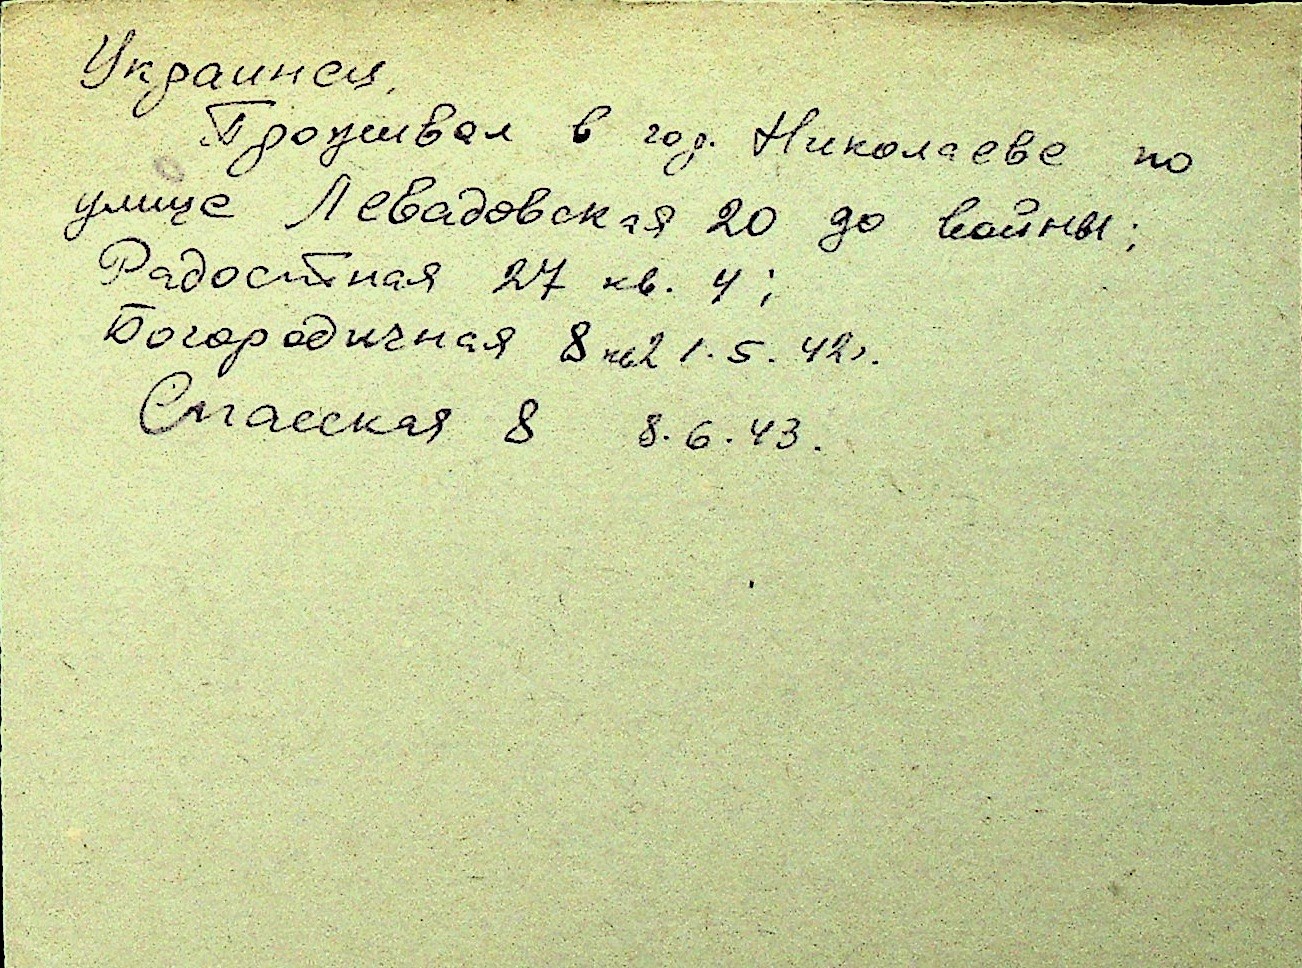 Украинец.
Проживал в гор. Николаеве по
улице Левадовская 20 до войны;
Радостная 27 кв. 4;
Богородичная 8 кв2 1.5.42г.
Спасская 8 8.6.43.